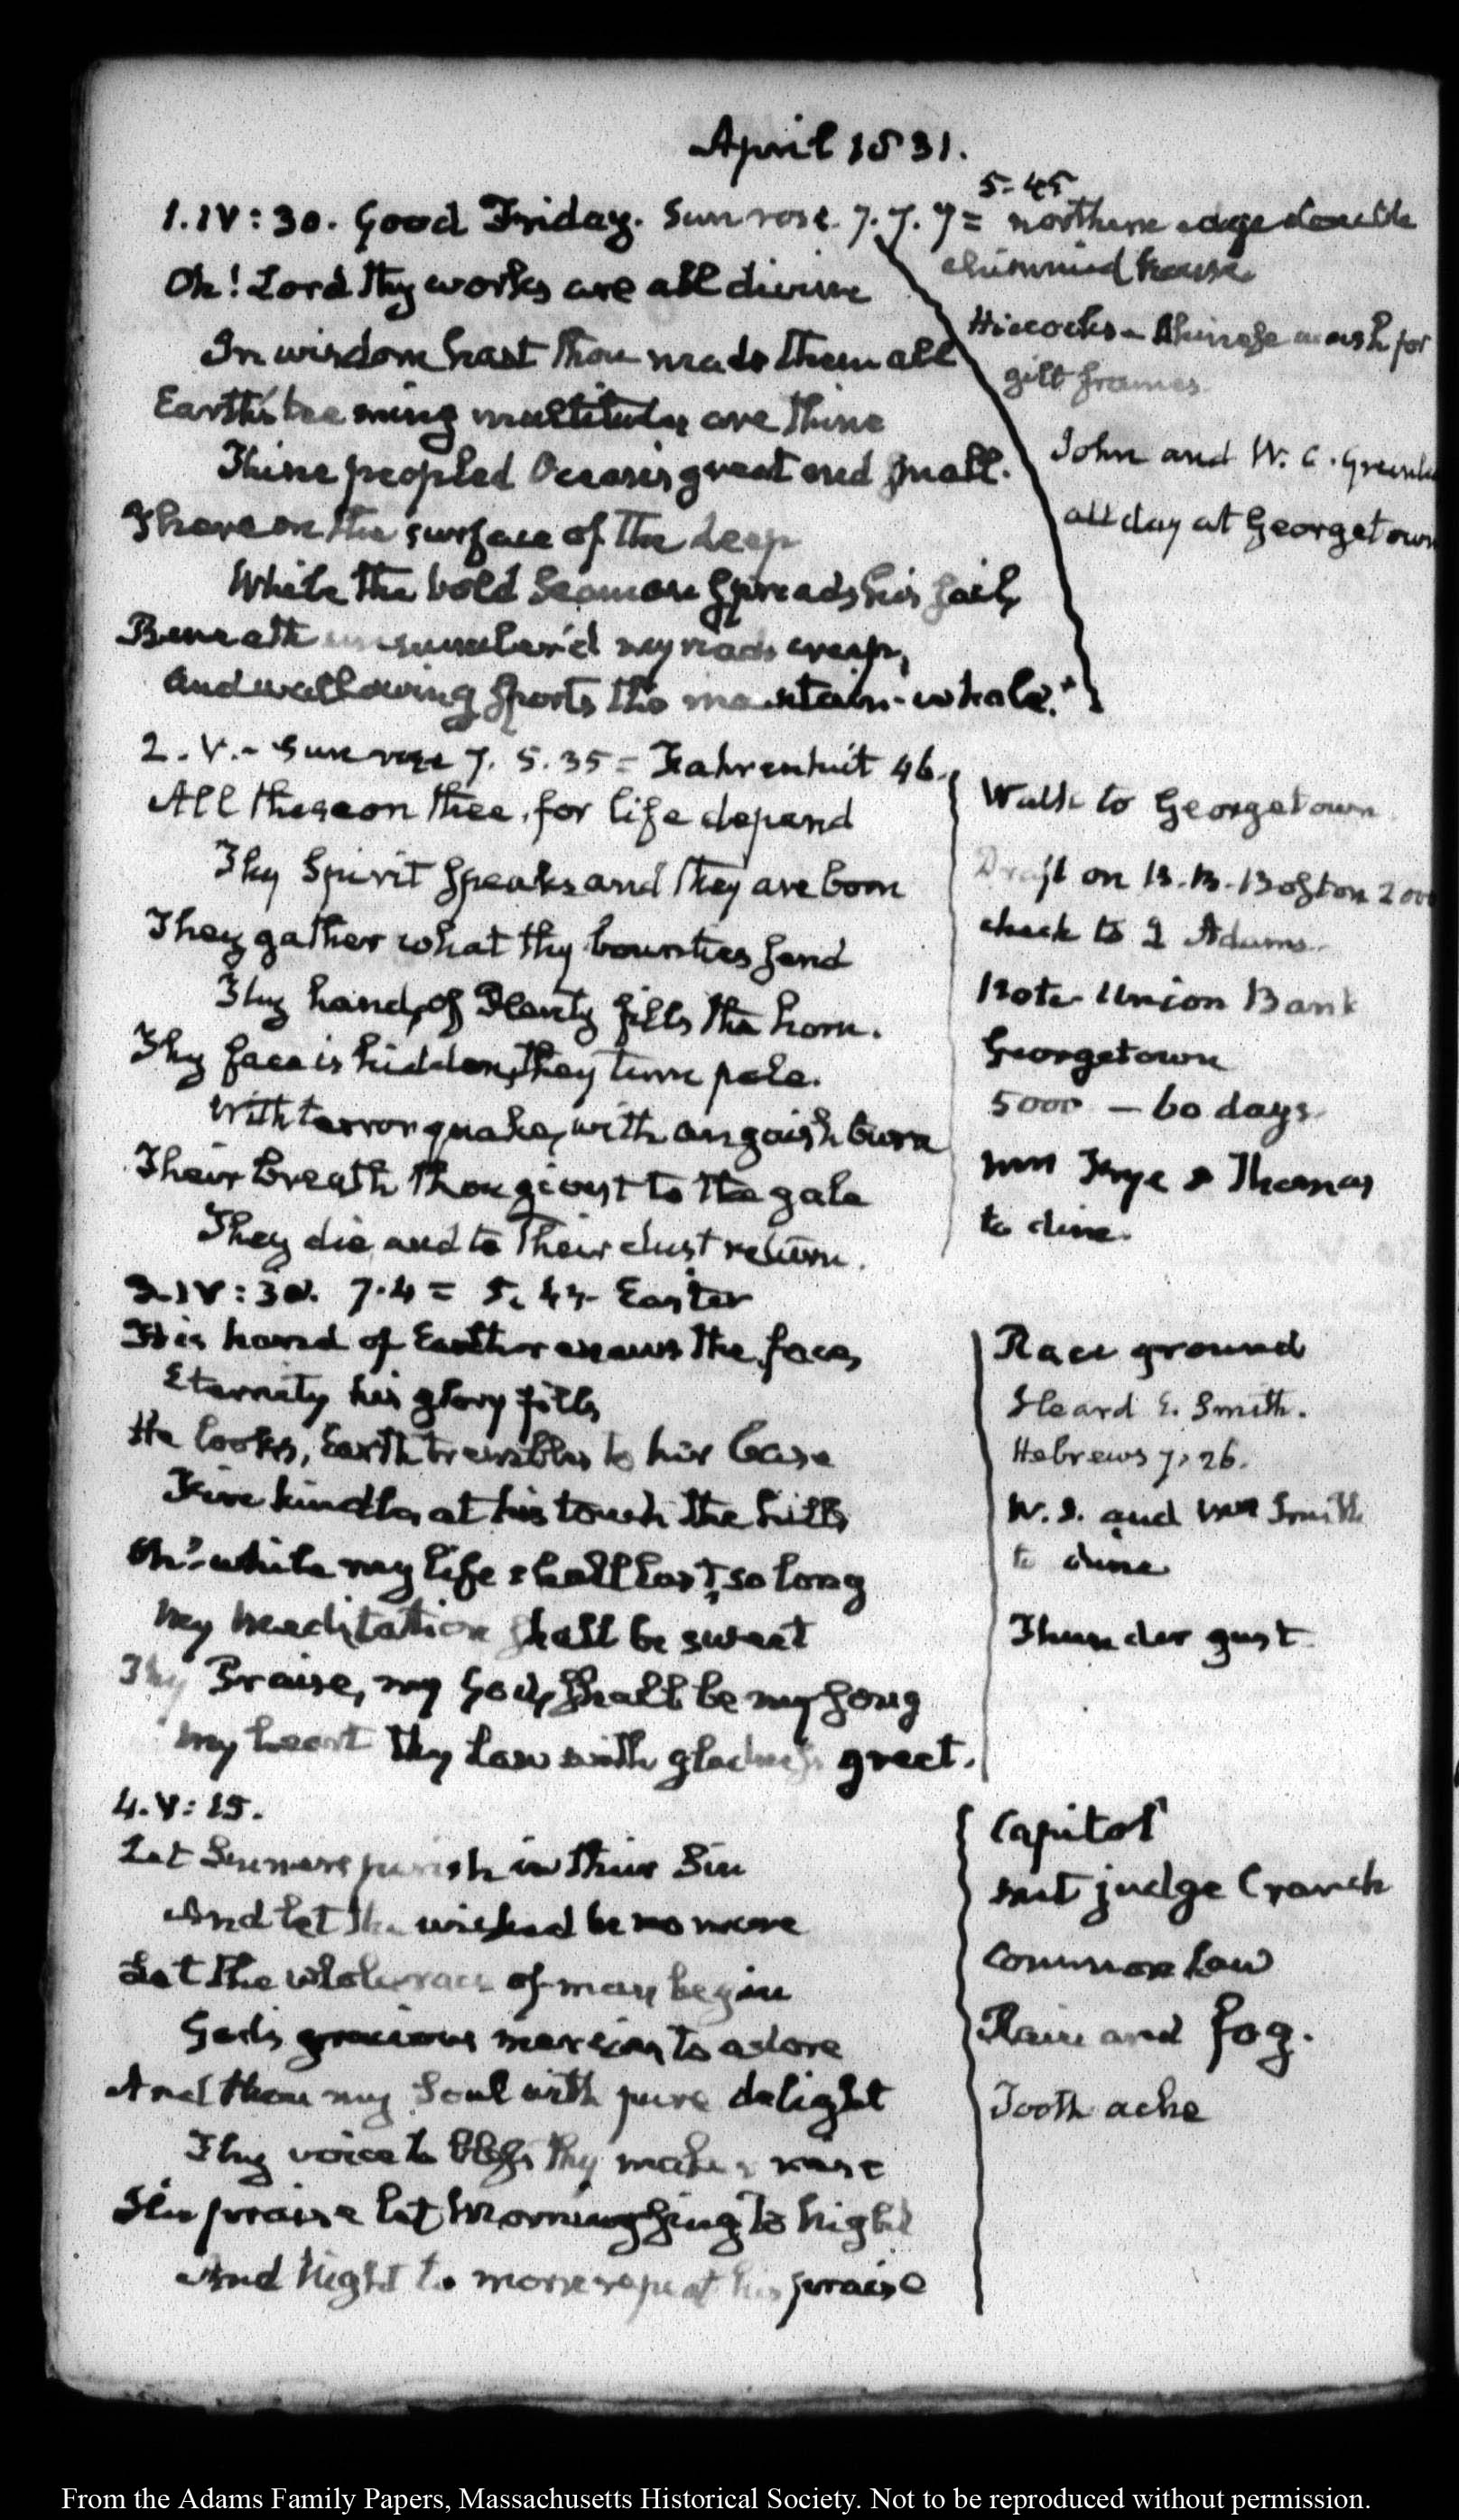 April 1831.
5-45
1. IV:30. Good Friday. Sun rose. 7. 7. 7 = northern edge double
chimnied house
Oh! Lord thy works are all divine
Hiccocks - Chinese wash for
In wisdom hast thou made them all
gilt frames
Earth's teeming multitudes are thine
Thine peopled Oceans great and small.
John and W. C. Greenle
There on the surface of the deep
all day at Georgetown
While the bold Seaman spreads his sail,
Beneath unnumber'd myriads creep,
And wallowing sports the mountain-whale.
2. V.- Sun rose 7. 5.35 = Fahrenheit 46.
All these on thee, for life depend
Thy Spirit speaks and they are born
They gather what thy bounties send
Thy hand, of Plenty fills the horn.
Thy face is hidden, they turn pale.
With terror quake, with anguish burn
Their breath thou givest to the gale
They die, and to their dust return.
Walk to Georgetown
Draft on B. B. Boston 2000
check to I Adams
Note Union Bank
Georgetown
5000 — 60 days
Mrs Frye & Thomas
to dine.
3. IV:30. 7.4 = 5.44 Easter
His hand of Earth renews the face,
Eternity his glory fills
He looks, Earth trembles to her base
Fire kindles at his touch the hills
Oh! while my life shall last, so long
My meditation shall be sweet
Thy Praise, my God, shall be my song
My heart thy Law with gladness greet.
Race ground
Heard E. Smith.
Hebrews 7. 26.
W. S. and Mrs Smith
to dine
Thunder gust
4. V:15.
Let Sinners perish in their Sin
And let the wicked be no more
Let the whole race of man begin
God's gracious mercies to adore
And thou my Soul with pure delight
Thy voice to bless thy maker raise
His praise let Morning sing to Night
And Night to morn repeat his praise
Capitol
met judge Cranch
Common Law
Rain and fog.
Tooth ache
From the Adams Family Papers, Massachusetts Historical Society. Not to be reproduced without permission.